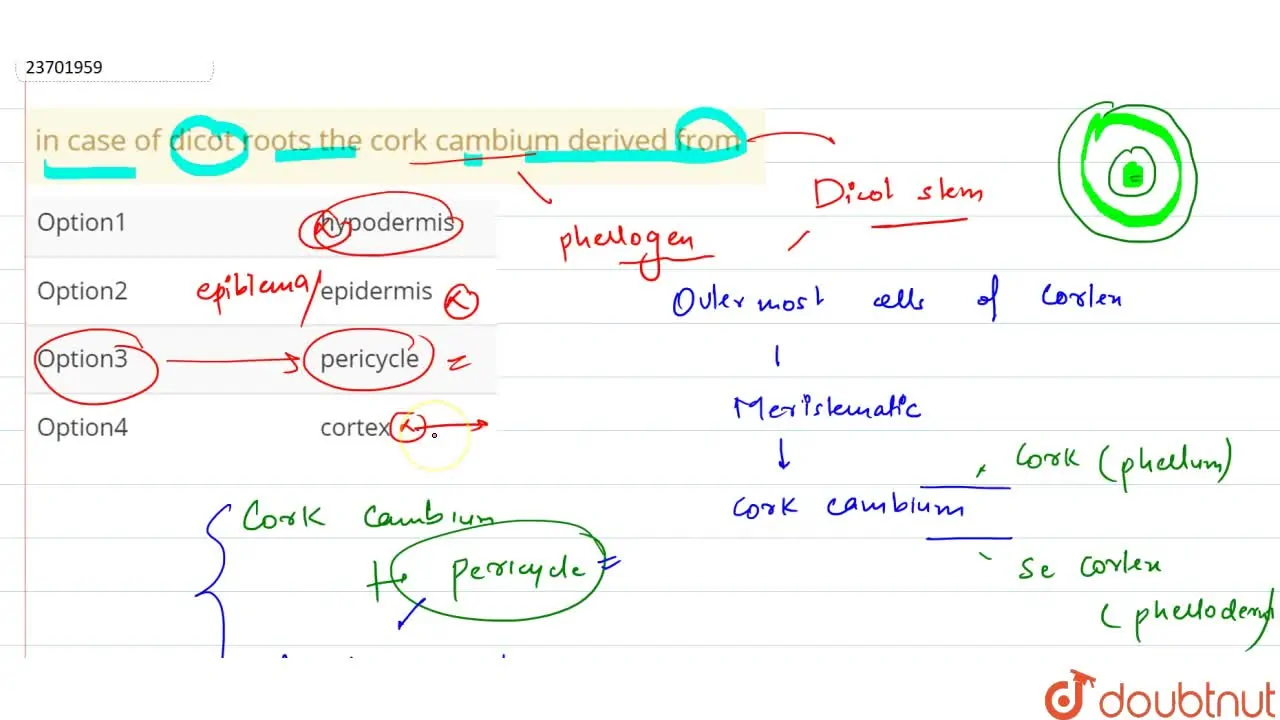 23701959
in case of dicot roots the cork cambium derived from
Dicot stem
Option1 hypodermis
phellogen
Option2 epiblema/epidermis
Outermost cells of cortex
Option3 pericycle
Meristematic
Option4 cortex
Cork (phellum)
Cork cambium
Cork cambium
pericycle
Se cortex
(phelloderm)
doubtnut